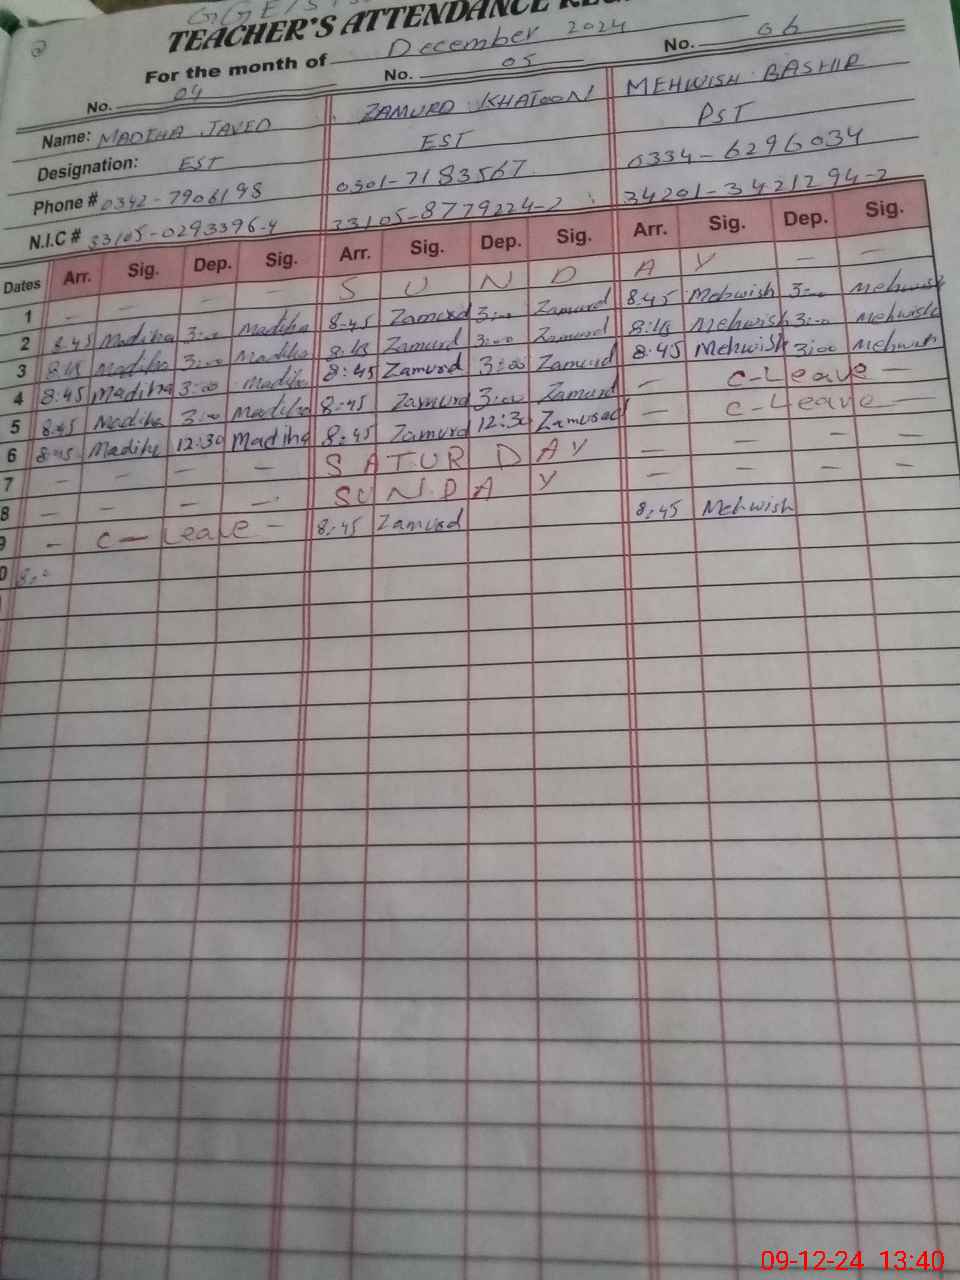 TEACHER'S ATTENDANCE
For the month of December 2024
No. 04 No. 05 No. 06
Name: MADIHA JAVED ZAMURD KHATOON MEHWISH BASHIR
Designation: EST EST PST
Phone # 0342-7906198 0301-7183567 0334-6296034
N.I.C # 33105-0293396-4 33105-8779224-2 34201-3421294-2
Dates Arr. Sig. Dep. Sig. Arr. Sig. Dep. Sig. Arr. Sig. Dep. Sig.
1 - - - - S U N D A Y - -
2 8:45 Madiha 3:00 Madiha 8:45 Zamurd 3:00 Zamurd 8:45 Mehwish 3:00 Mehwish
3 Madiha 3:00 Madiha Zamurd 3:00 Zamurd Mehwish 3:00 Mehwish
4 8:45 Madiha 3:00 Madiha 8:45 Zamurd 3:00 Zamurd 8:45 Mehwish 3:00 Mehwish
5 8:45 Madiha 3:00 Madiha 8:45 Zamurd 3:00 Zamurd - C-Leave -
6 8:45 Madiha 12:30 Madiha 8:45 Zamurd 12:30 Zamurd - C-Leave -
7 - - - - S A T U R D A Y - - - -
8 - - - - S U N D A Y - - - -
9 - C-Leave - 8:45 Zamurd 8:45 Mehwish
0
09-12-24 13:40